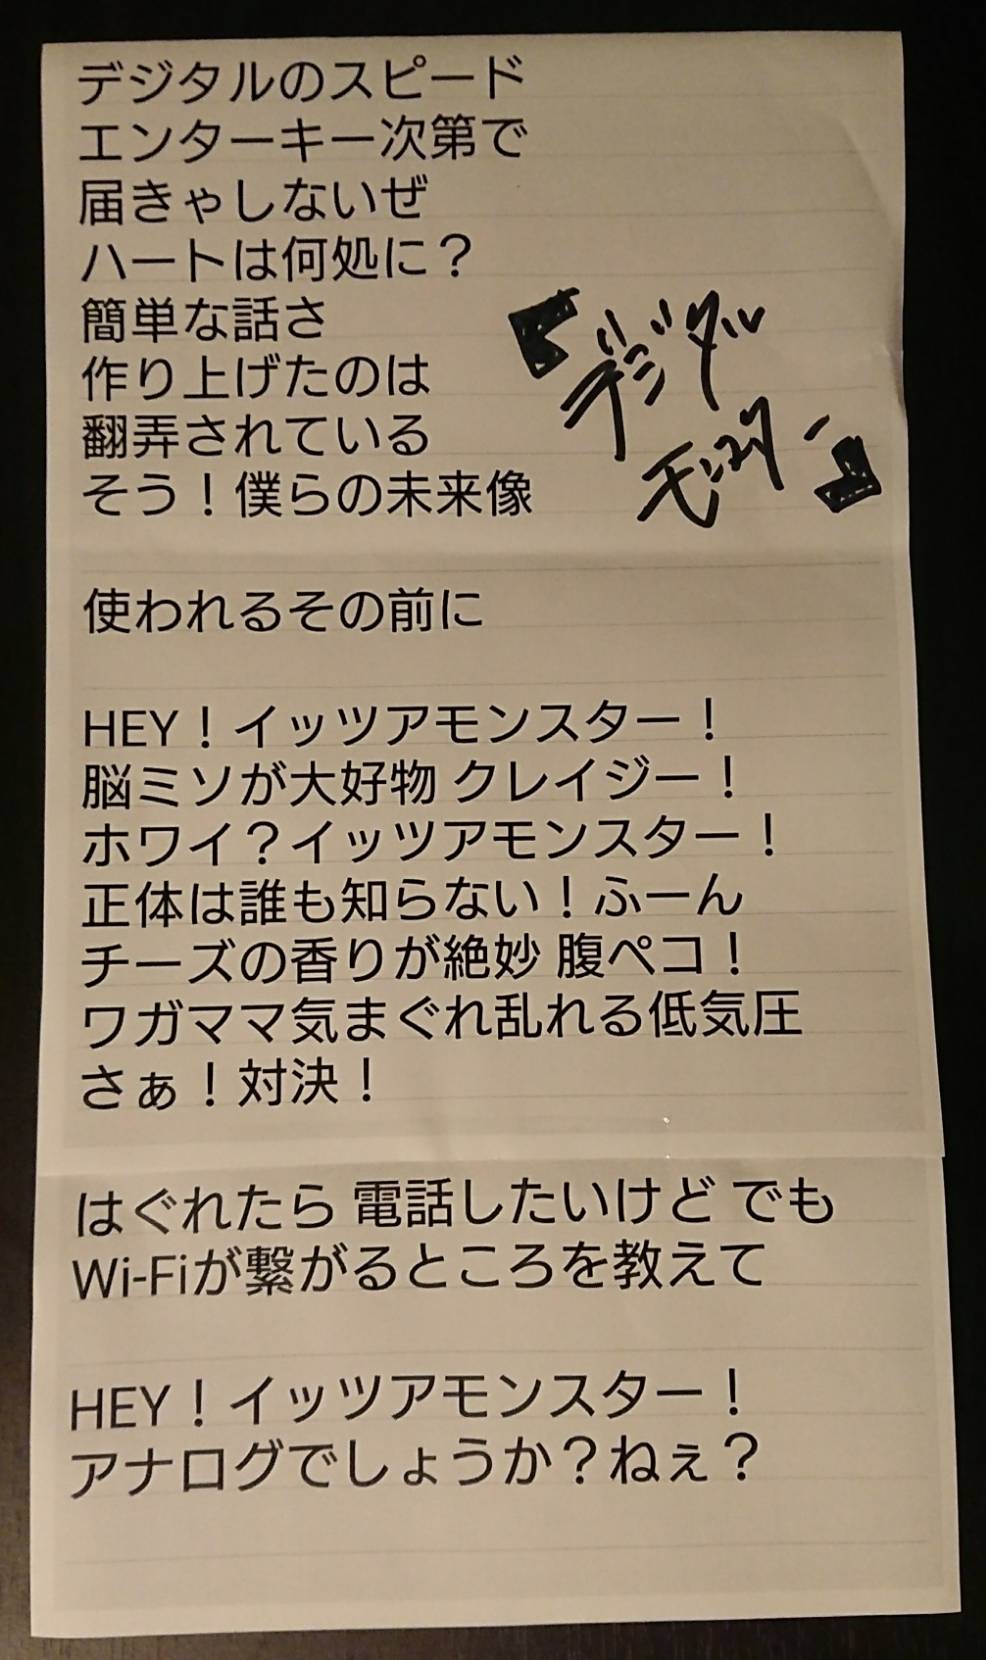 デジタルのスピード
エンターキー次第で
届きゃしないぜ
ハートは何処に？
簡単な話さ
作り上げたのは
翻弄されている
そう！僕らの未来像
『デジタル
モンスター』
使われるその前に
HEY！イッツアモンスター！
脳ミソが大好物 クレイジー！
ホワイ？イッツアモンスター！
正体は誰も知らない！ふーん
チーズの香りが絶妙 腹ペコ！
ワガママ気まぐれ乱れる低気圧
さぁ！対決！
はぐれたら 電話したいけど でも
Wi-Fiが繋がるところを教えて
HEY！イッツアモンスター！
アナログでしょうか？ねぇ？